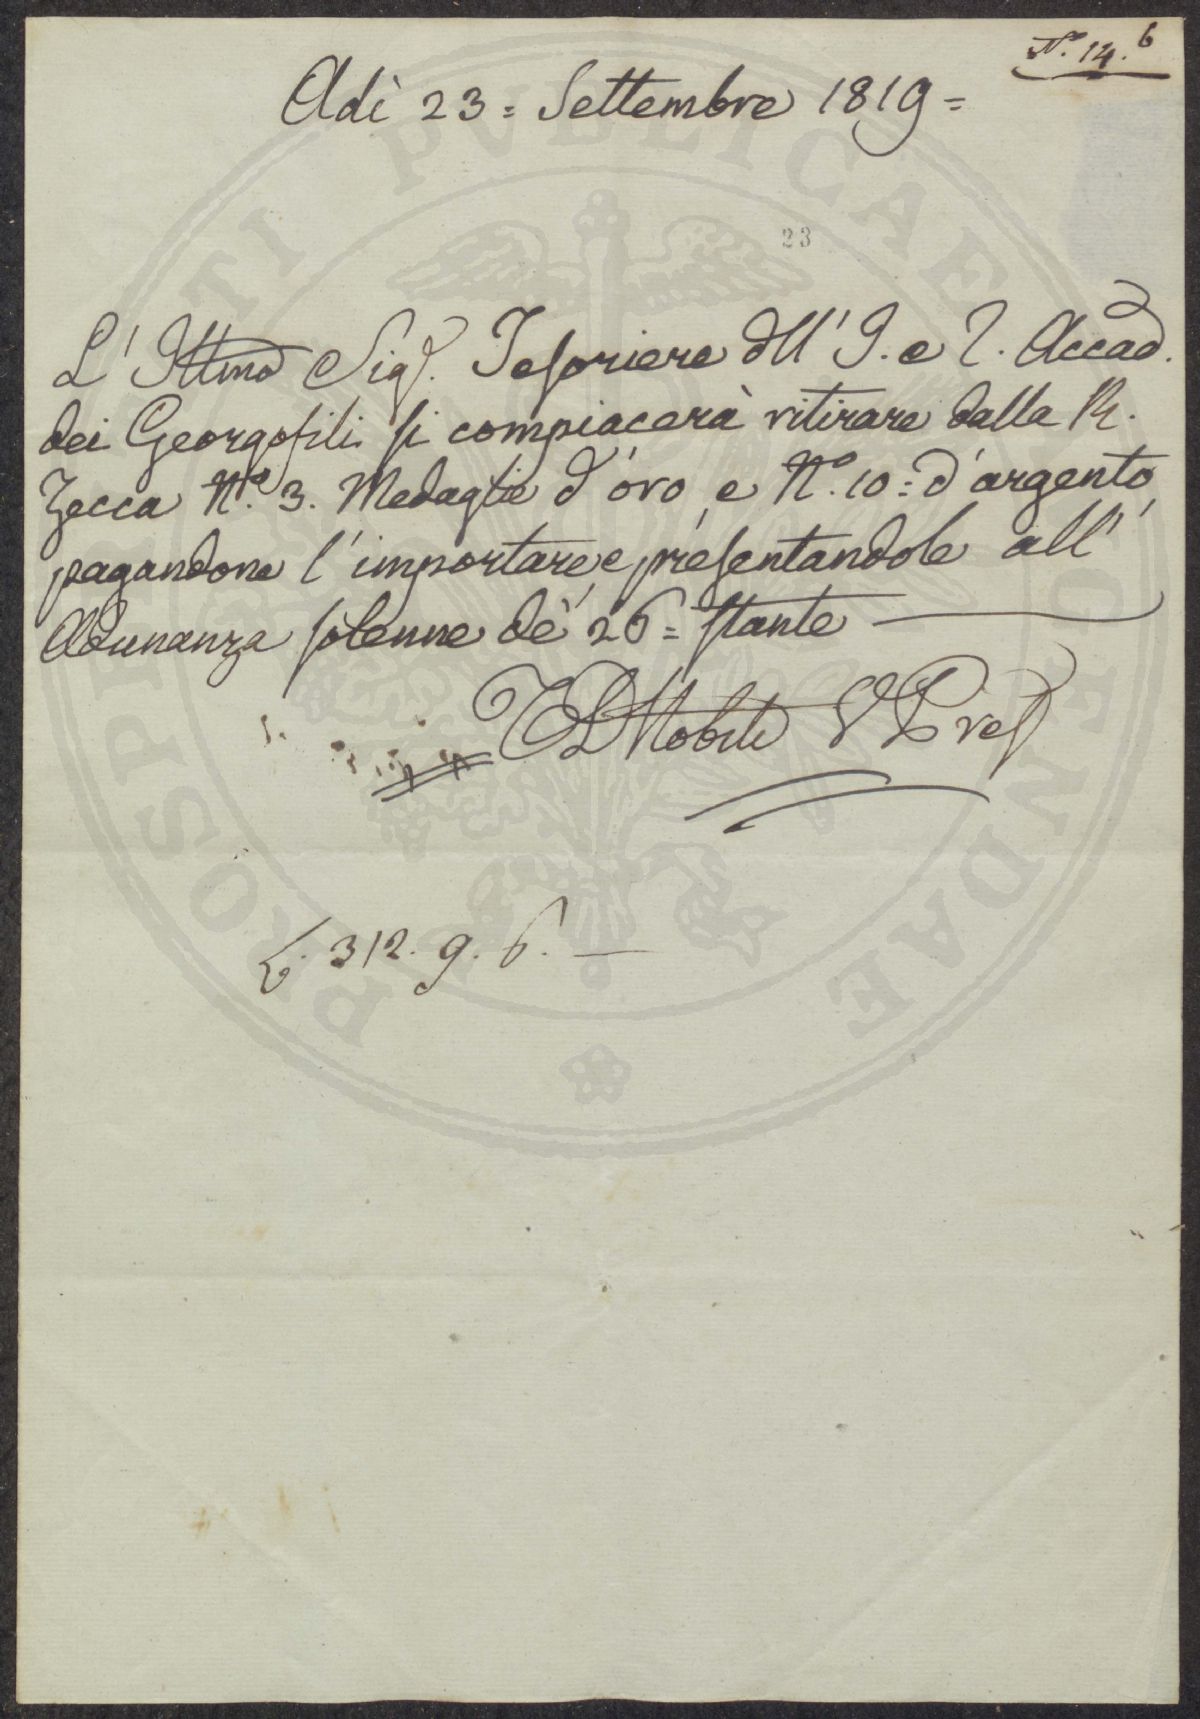 N.° 14. 6
Adì 23 = Settembre 1819 =
23
L' Illmo Sig.r Tesoriere dll' I. e R. Accad.
dei Georgofili si compiacerà ritirare dalla R.
Zecca N.° 3. Medaglie d'oro, e N.° 10 = d'argento,
pagandone l'importare, e presentandole all'
Adunanza solenne de' 26 = stante
Nobili V Pres
L. 312. 9. 6. —
PROSPERITATI PUBLICAE AUGENDAE